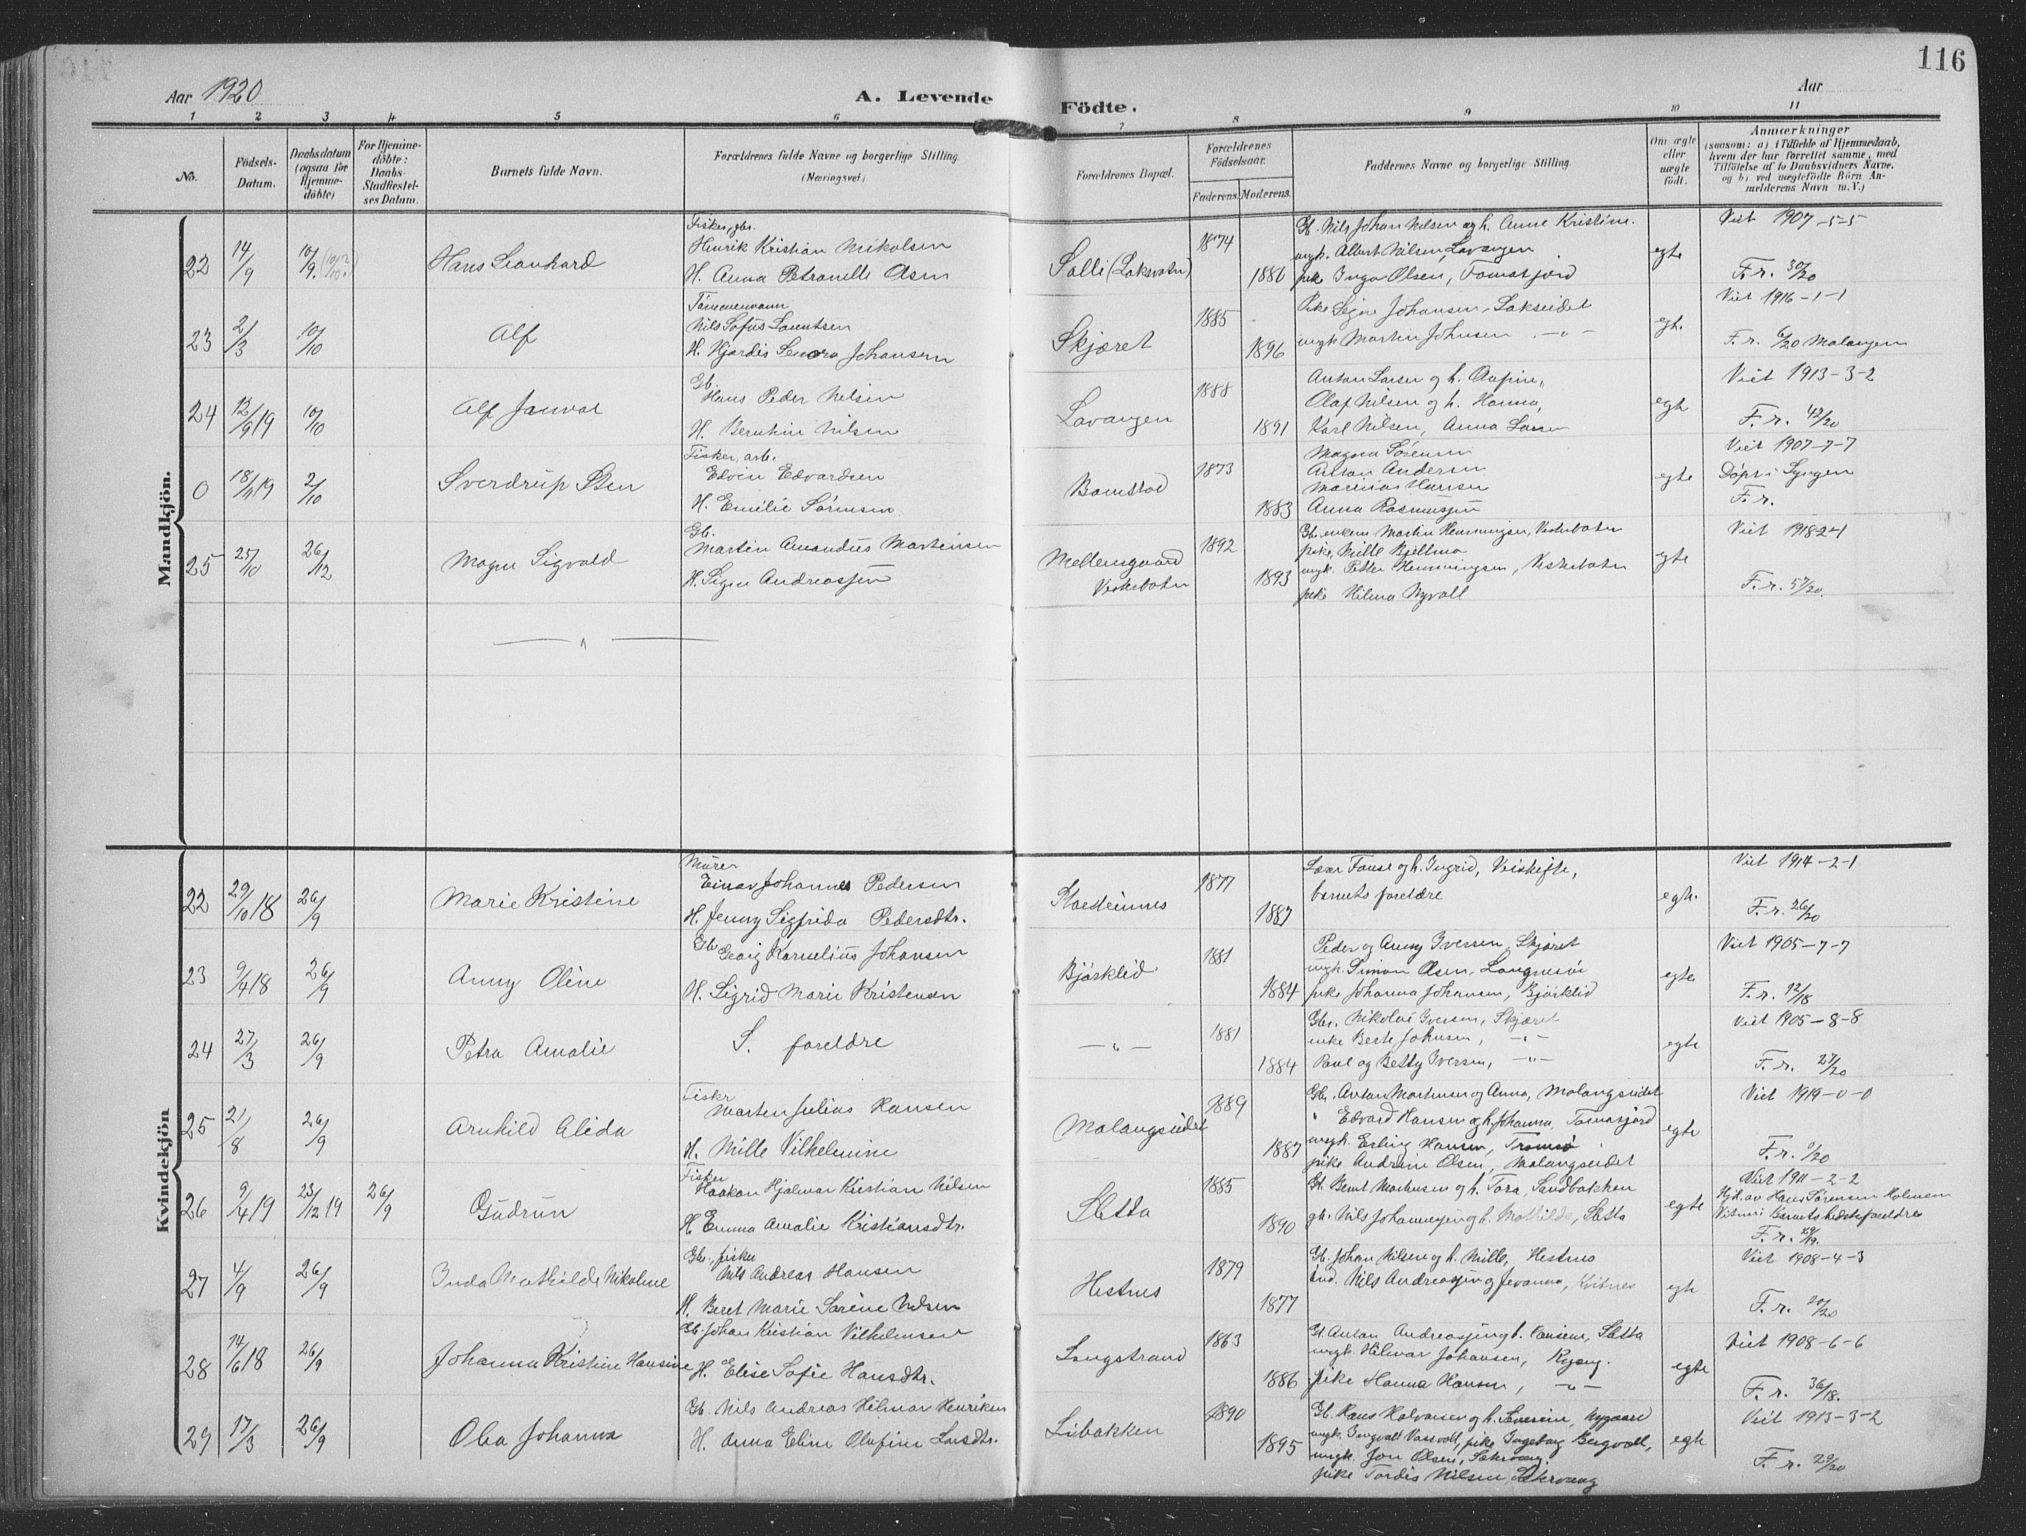 116
Aar 1920
A. Levende Födte.
Aar
1 2 3 4 5 6 7 8 9 10 11
No.
Födsels-Datum.
Daabsdatum (ogsaa for Hjemmedöbte)
For Hjemmedöbte: Daabs-Stadfæstelses Datum.
Barnets fulde Navn.
Forældrenes fulde Navne og borgerlige Stilling. (Næringsvei.)
Forældrenes Bopæl.
Forældrenes Födselsaar.
Faderens. Moderens.
Faddernes Navne og borgerlige Stilling.
Om ægte eller uægte födt.
Anmærkninger
(saasom: a) i Tilfælde af Hjemmedaab, hvem der har forrettet samme, med Tilföielse af to Daabsvidners Navne, og b) ved uegtefödte Börn Anmelderens Navn m. V.)
Mandkjön.
Fisker, gbr.
22 14/9 10/9. Hans Leonhard
Henrik Kristian Nikolsen
H. Anna Petranelle Olsen
Solli (Laksvatn)
1874
1886
Gb. Nils Johan Nilsen og h. Anne Kristine.
ungk. Albert Nilsen, Lavangen
pike Inga Olsen, Tomasjord
egte
Viet 1907-5-5
F. r. 30/20
Tømmermann
23 2/3 10/10 Alf
Nils Sofus Lauritsen
H. Hjørdis Senora Johansen
Skjæret
1885
1896
Pike Signe Johansen, Lakseidet
ungk. Martin Johnsen -„-
egt.
Viet 1916-1-1
F. r. 6/20 Malangen
Gb.
24 12/9 19 10/10 Alf Janvar
Hans Peder Nilsen
H. Berntine Nilsen
Lavangen
1888
1891
Anton Larsen og h.
Olaf Nilsen og h. Hanna,
Karl Nilsen, Anna Larsen
egte
Viet 1913-3-2
F. r. 42/20
Fisker, arb.
0 18/ 19 2/10 Sverdrup Sten
Edvin Edvardsen
H. Emilie Sørensen
1873
1883
Magna Sørensen
Anton Andersen
Marinus Hansen
Anna Rasmussen
egte
Viet 1907-7-7
Døpt i Lyngen
F. r.
Gb.
25 25/10 26/12 Magne Sigvald
Martin Amandus Martinsen
H. Signe Andreassen
Mellemgaard
Vestrebotn
1892
1893
Gb. enkem. Martin Henningsen, Vestrebotn
pike, Mille Kjellmo
ungk. Petter Henningsen, Vestrebotn
pike Hilma Nyvoll
egte
Viet 1918-2-1
F. r. 57/20.
Kvindekjön
Murer
22 29/10 18 26/9 Marie Kristine
Einar Johannes Pedersen
H. Jenny Sigfrida Pedersdtr.
1877
1887
Ingrid,
barnets foreldre
egte.
Viet 1914-2-1
F. r. 26/20
Gb.
23 9/4 18 26/9 Anny Oline
Georg Kornelius Johansen
H. Sigrid Marie Kristensen
Bjørklid
1881
1884
Peder og Anny Iversen, Skjæret
ungk. Simon Olsen, Langnesør
pike Johanna Johansen, Bjørklid
egte
Viet 1905-7-7
F. r. 12/18
24 27/3 26/9 Petra Amalie
S. foreldre
-„-
1881
1884
Gbr. Nikolai Iversen, Skjæret
enke Berte Johnsen, -„-
Paul og Betty Iversen, -„-
egte
Viet 1905-8-8
F. r. 27/20
Fisker
25 21/8 26/9 Arnhild Alida
Morten Julius Hansen
H. Mille Vilhelmine
Malangseidet
1889
1887
Gb. Anton Mortensen og Anna, Malangseidet
„ Edvard Hansen og h. Johanna, Tomasjord
ungk. Erling Hansen, Tromsø
pike Andrine Olsen, Malangseidet
egte
Viet 1919-0-0
F. r. 0/20
Fisker
26 9/4 19 23/12 19 26/9 Gudrun
Haakon Hjalmar Kristian Nilsen
H. Emma Amalie Kristiansdtr.
Sletta
1885
1890
Gb. Bernt Mortensen og h. Tora, Sandbakken
gb. Nils Johannesen og h. Mathilde, Sletta
egte
Viet 1911-2-2
Hjd. av Hans Sørensen Holmen
Vitner: Barnets bedsteforeldre
F. r. 29/19.
Gb. fisker
27 4/9 26/9 Inda Mathilde Nikoline
Nils Andreas Hansen
H. Beret Marie Sørine Nilsen
Hestnes
1879
1877
Gb. Johan Nilsen og h. Mille, Hestnes
Nils Andreassen og Jevanna, Kvitnes
egte
Viet 1908-4-3
F. r. 20/20
28 14/6 18 26/9 Johanna Kristine Hansine
Gb. Johan Kristian Vilhelmsen
H. Elise Sofie Hansdtr.
Langstrand
1863
1886
Gb. Anton Andreassen og h. Hansine, Sletta
ungk. Hilmar Johansen, Ryøng.
pike Hanna Hansen, -„-
egte
Viet 1908-6-6
F. r. 36/18.
29 17/3 26/9 Olea Johanna
Gb. Nils Andreas Hilmar Henriksen
H. Anna Eline Olufine Larsdtr.
Libakken
1890
1895
Gb. Hans Halvorsen og h. Severine, Nygaard
ungk. Ingvall Vasvoll, pike Ingeborg Bergvoll,
ungk. Jon Olsen,
pike Tordis Nilsen,
egte
Viet 1913-3-2
F. r. 29/20